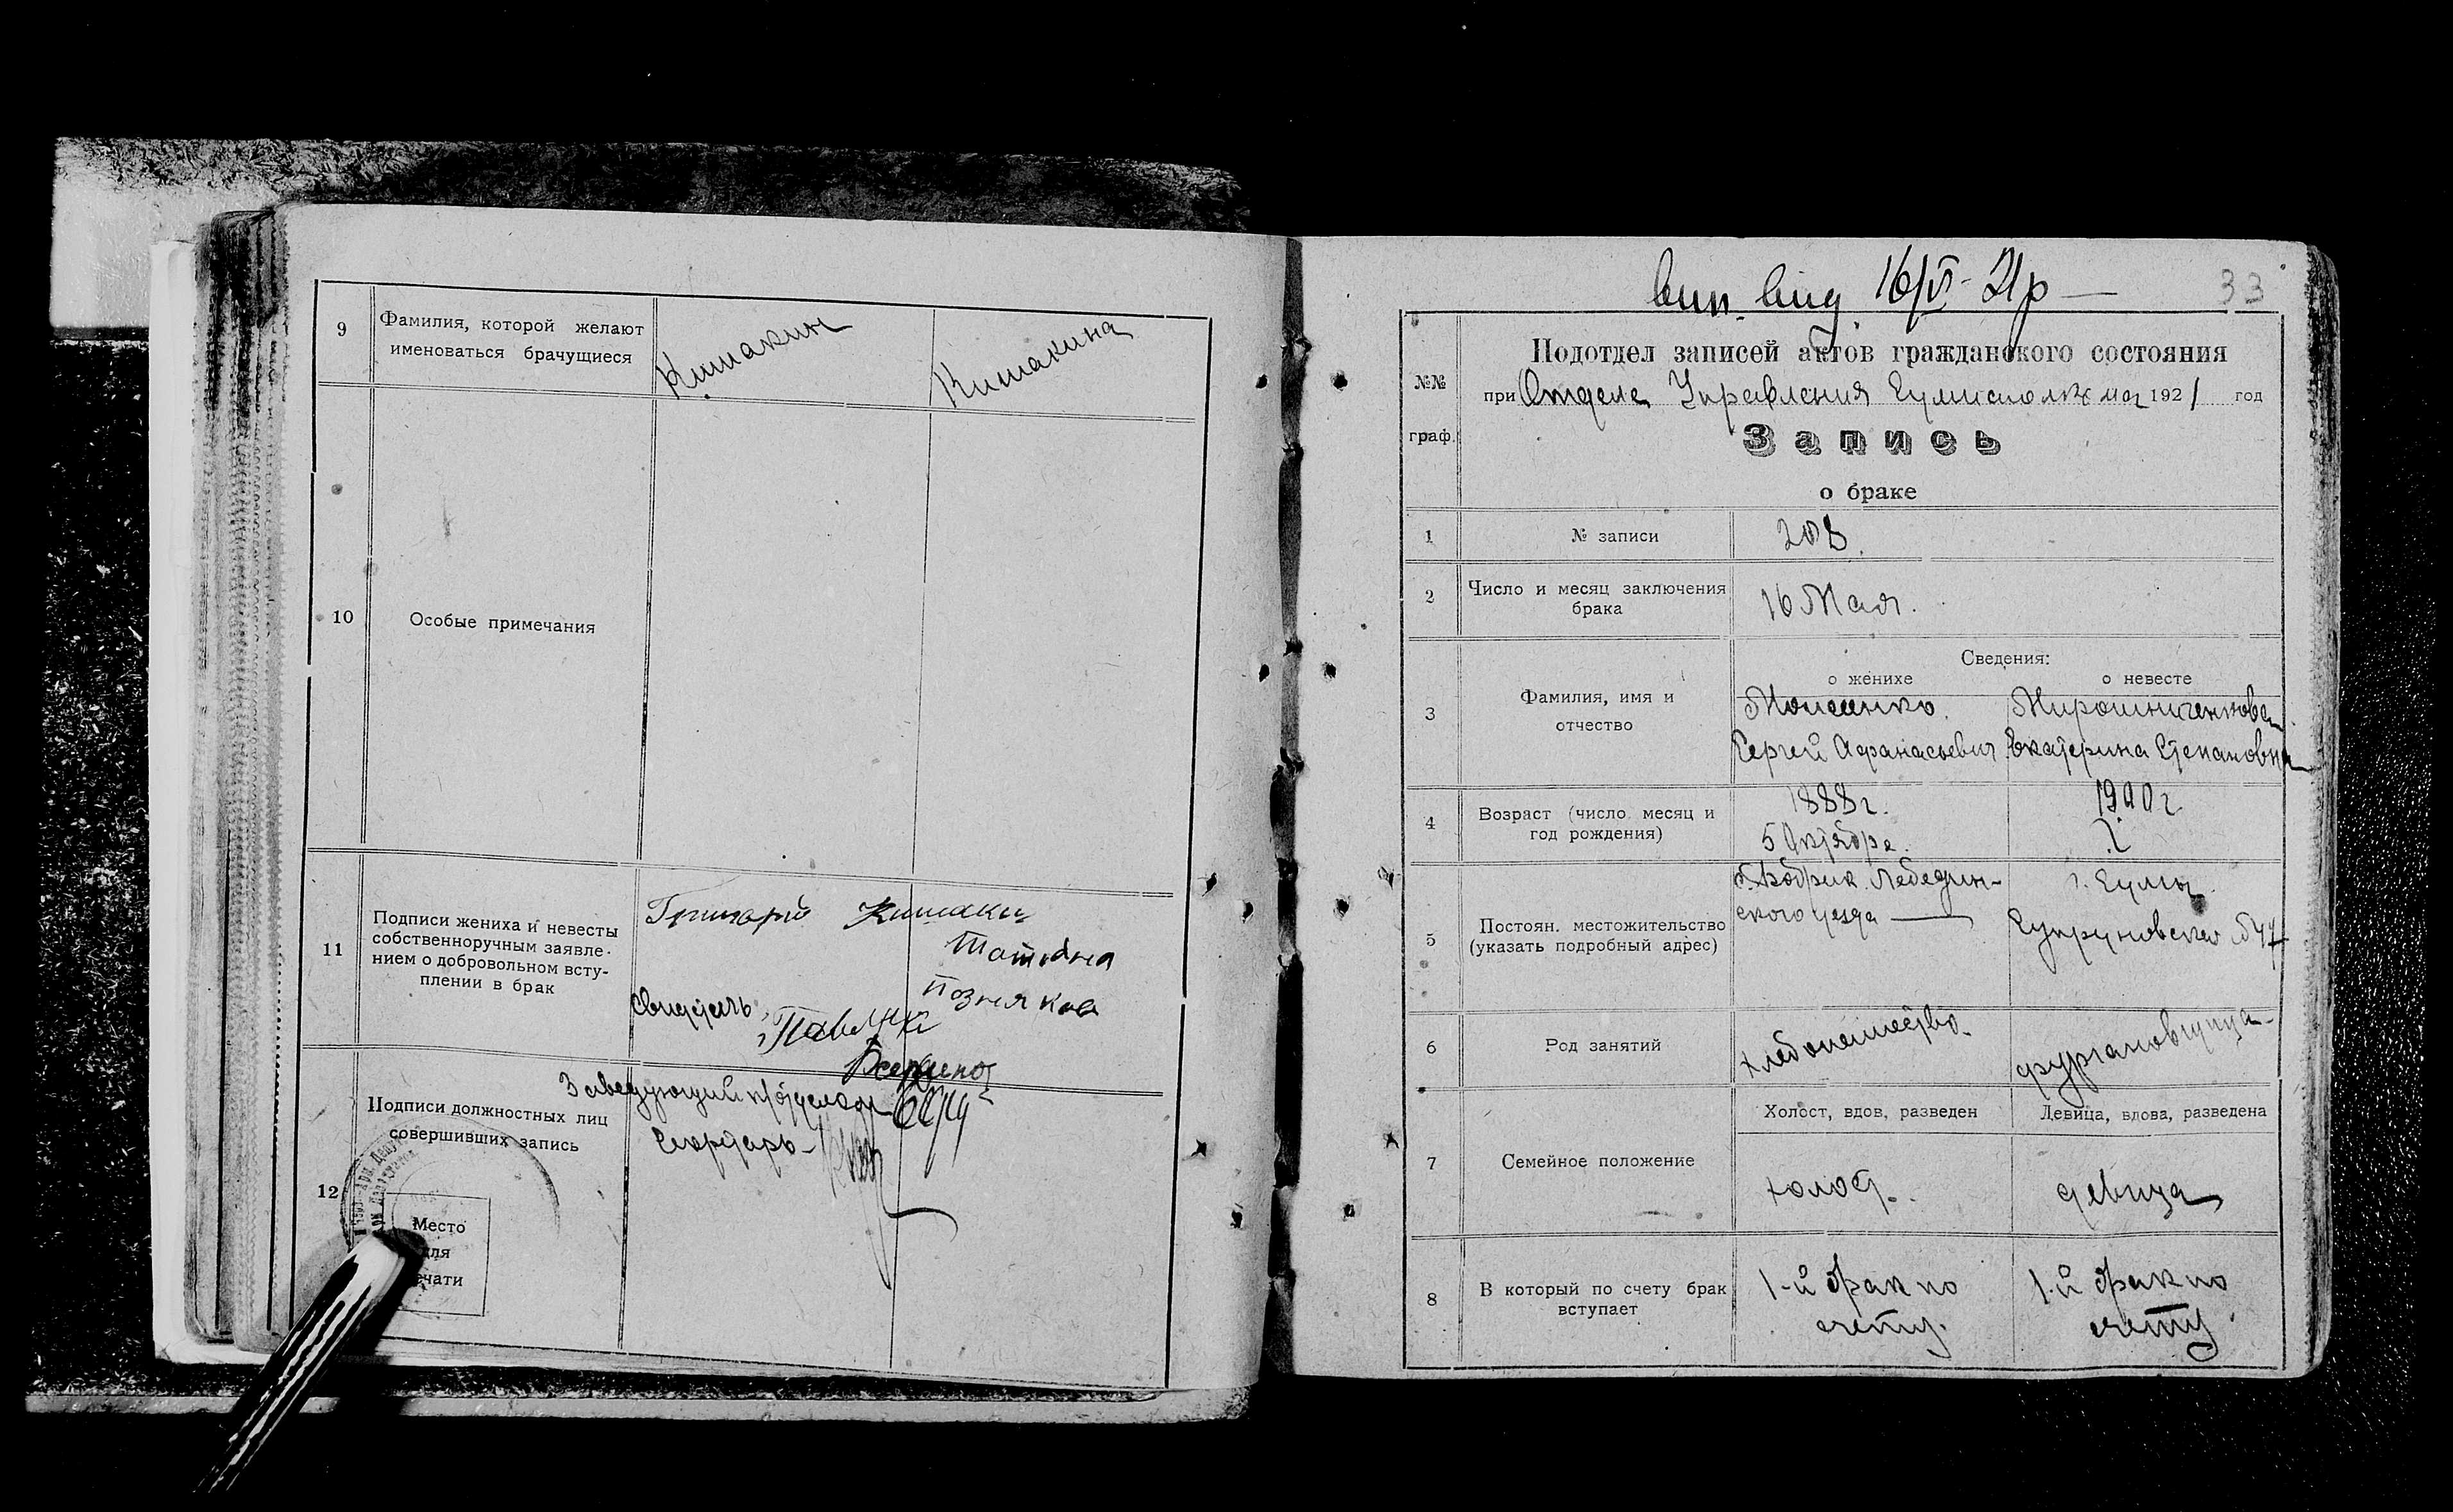 9
Фамилия, которой желают
именоваться брачущиеся
Кишакин
Кишакина
10
Особые примечания
11
Подписи жениха и невесты
собственноручным заявле-
нием о добровольном всту-
плении в брак
Григорій Кишакин
Татьяна
Познякова
12
Подписи должностных лиц
совершивших запись
Заведующий п/отделом
Секретарь
Место
для
ечати
вип. вид. 16/VI-21р
33
№№
граф.
Подотдел записей актов гражданского состояния
при Отделе Управления Сумисполкома 1921 год
Запись
о браке
1
№ записи
208.
2
Число и месяц заключения
брака
16 Мая.
3
Фамилия, имя и
отчество
Сведения:
о женихе
о невесте
Мирошниченкова
Сергей Афанасьевич
Екатерина Степановна
4
Возраст (число месяц и
год рождения)
1888г.
5 Октября.
1900г
?
5
Постоян. местожительство
(указать подробный адрес)
Лебедин-
ского уезда
г. Сумы.
Супруновская №47
6
Род занятий
хлебопашество.
7
Семейное положение
Холост, вдов, разведен
Девица, вдова, разведена
холост.
девица
8
В который по счету брак
вступает
1-й брак по
счету.
1-й брак по
счету.